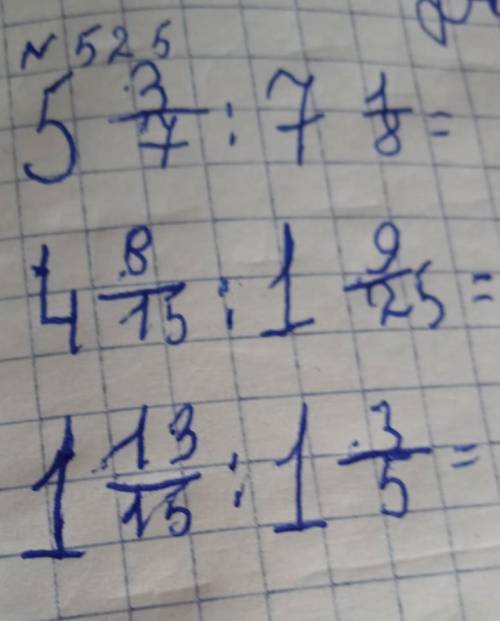 № 525
5 3/7 : 7 1/8 =
4 8/15 : 1 9/25 =
1 13/15 : 1 3/5 =